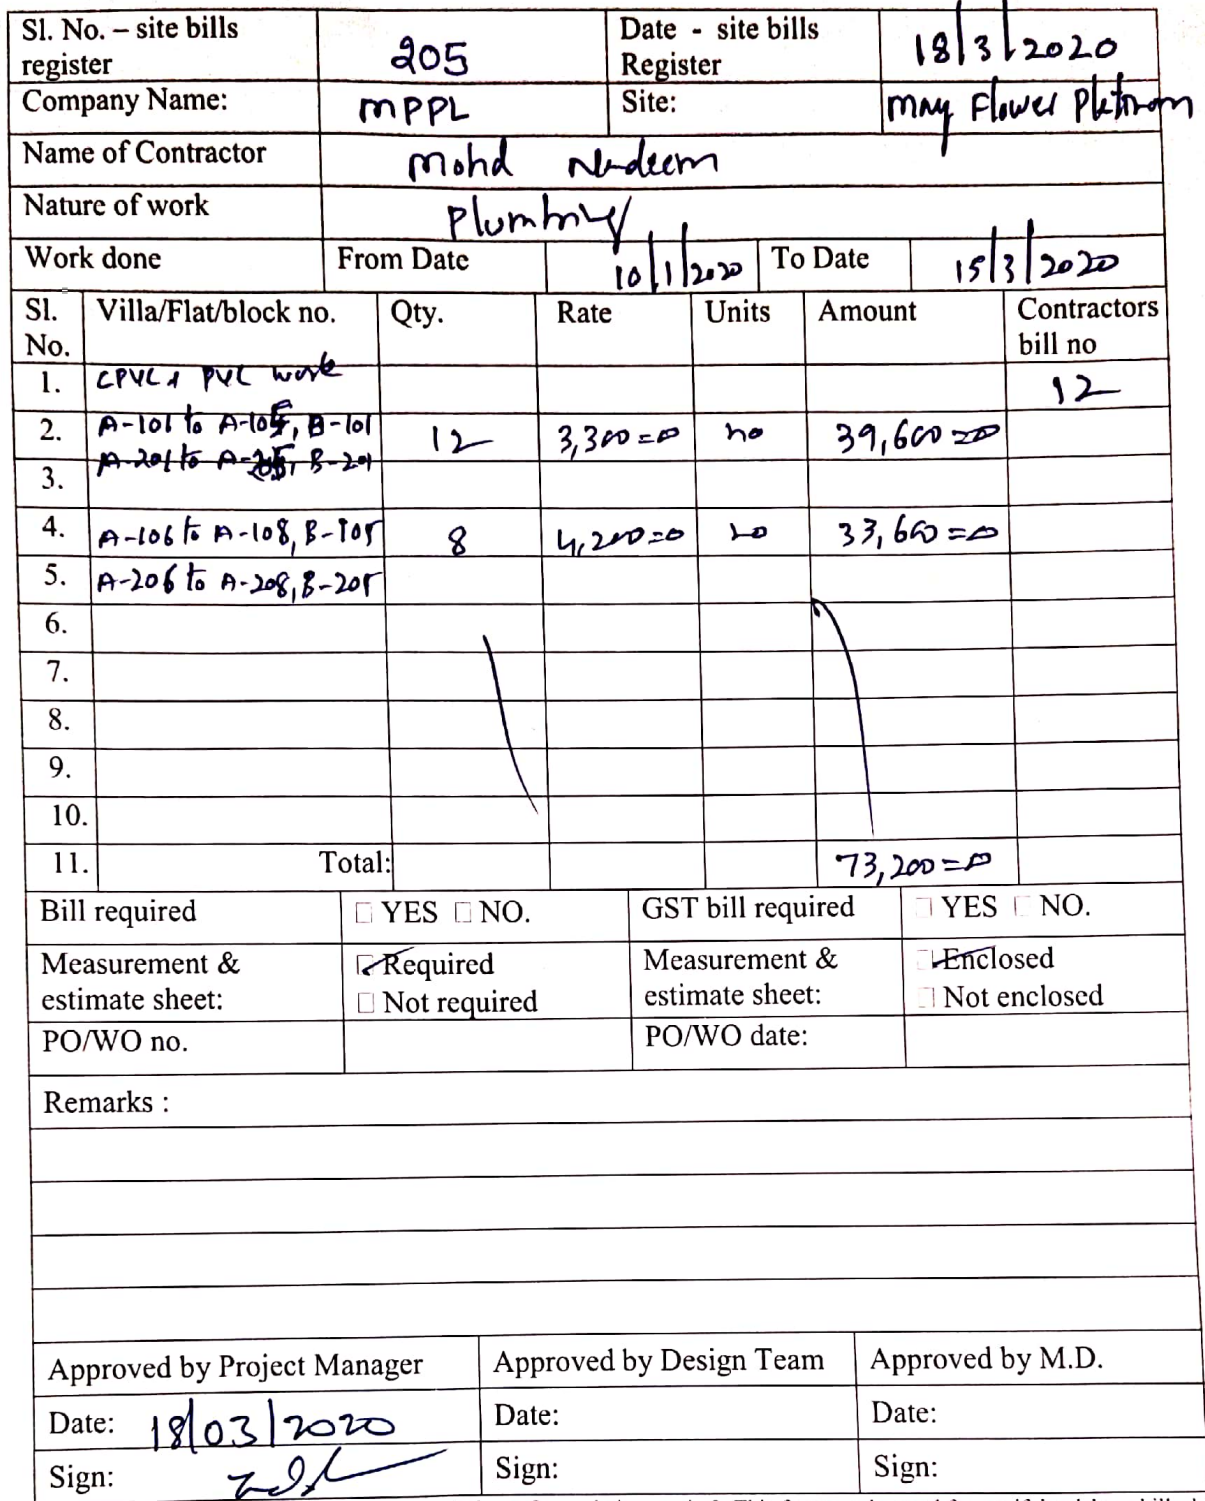 Sl. No. – site bills register 205 Date - site bills Register 18/3/2020
Company Name: MPPL Site: May Flower Platinum
Name of Contractor Mohd Nadeem
Nature of work Plumbing
Work done From Date 10/1/2020 To Date 15/3/2020
Sl. No. Villa/Flat/block no. Qty. Rate Units Amount Contractors bill no
1. CPVC & PVC work 12
2. A-101 to A-105, B-101 12 3,300=00 no 39,600=00
3. A-201 to A-205, B-201
4. A-106 to A-108, B-105 8 4,200=00 no 33,600=00
5. A-206 to A-208, B-205
6.
7.
8.
9.
10.
11. Total: 73,200=00
Bill required YES NO. GST bill required YES NO.
Measurement & estimate sheet: Required Not required Measurement & estimate sheet: Enclosed Not enclosed
PO/WO no. PO/WO date:
Remarks :
Approved by Project Manager Approved by Design Team Approved by M.D.
Date: 18/03/2020 Date: Date:
Sign: Sign: Sign: